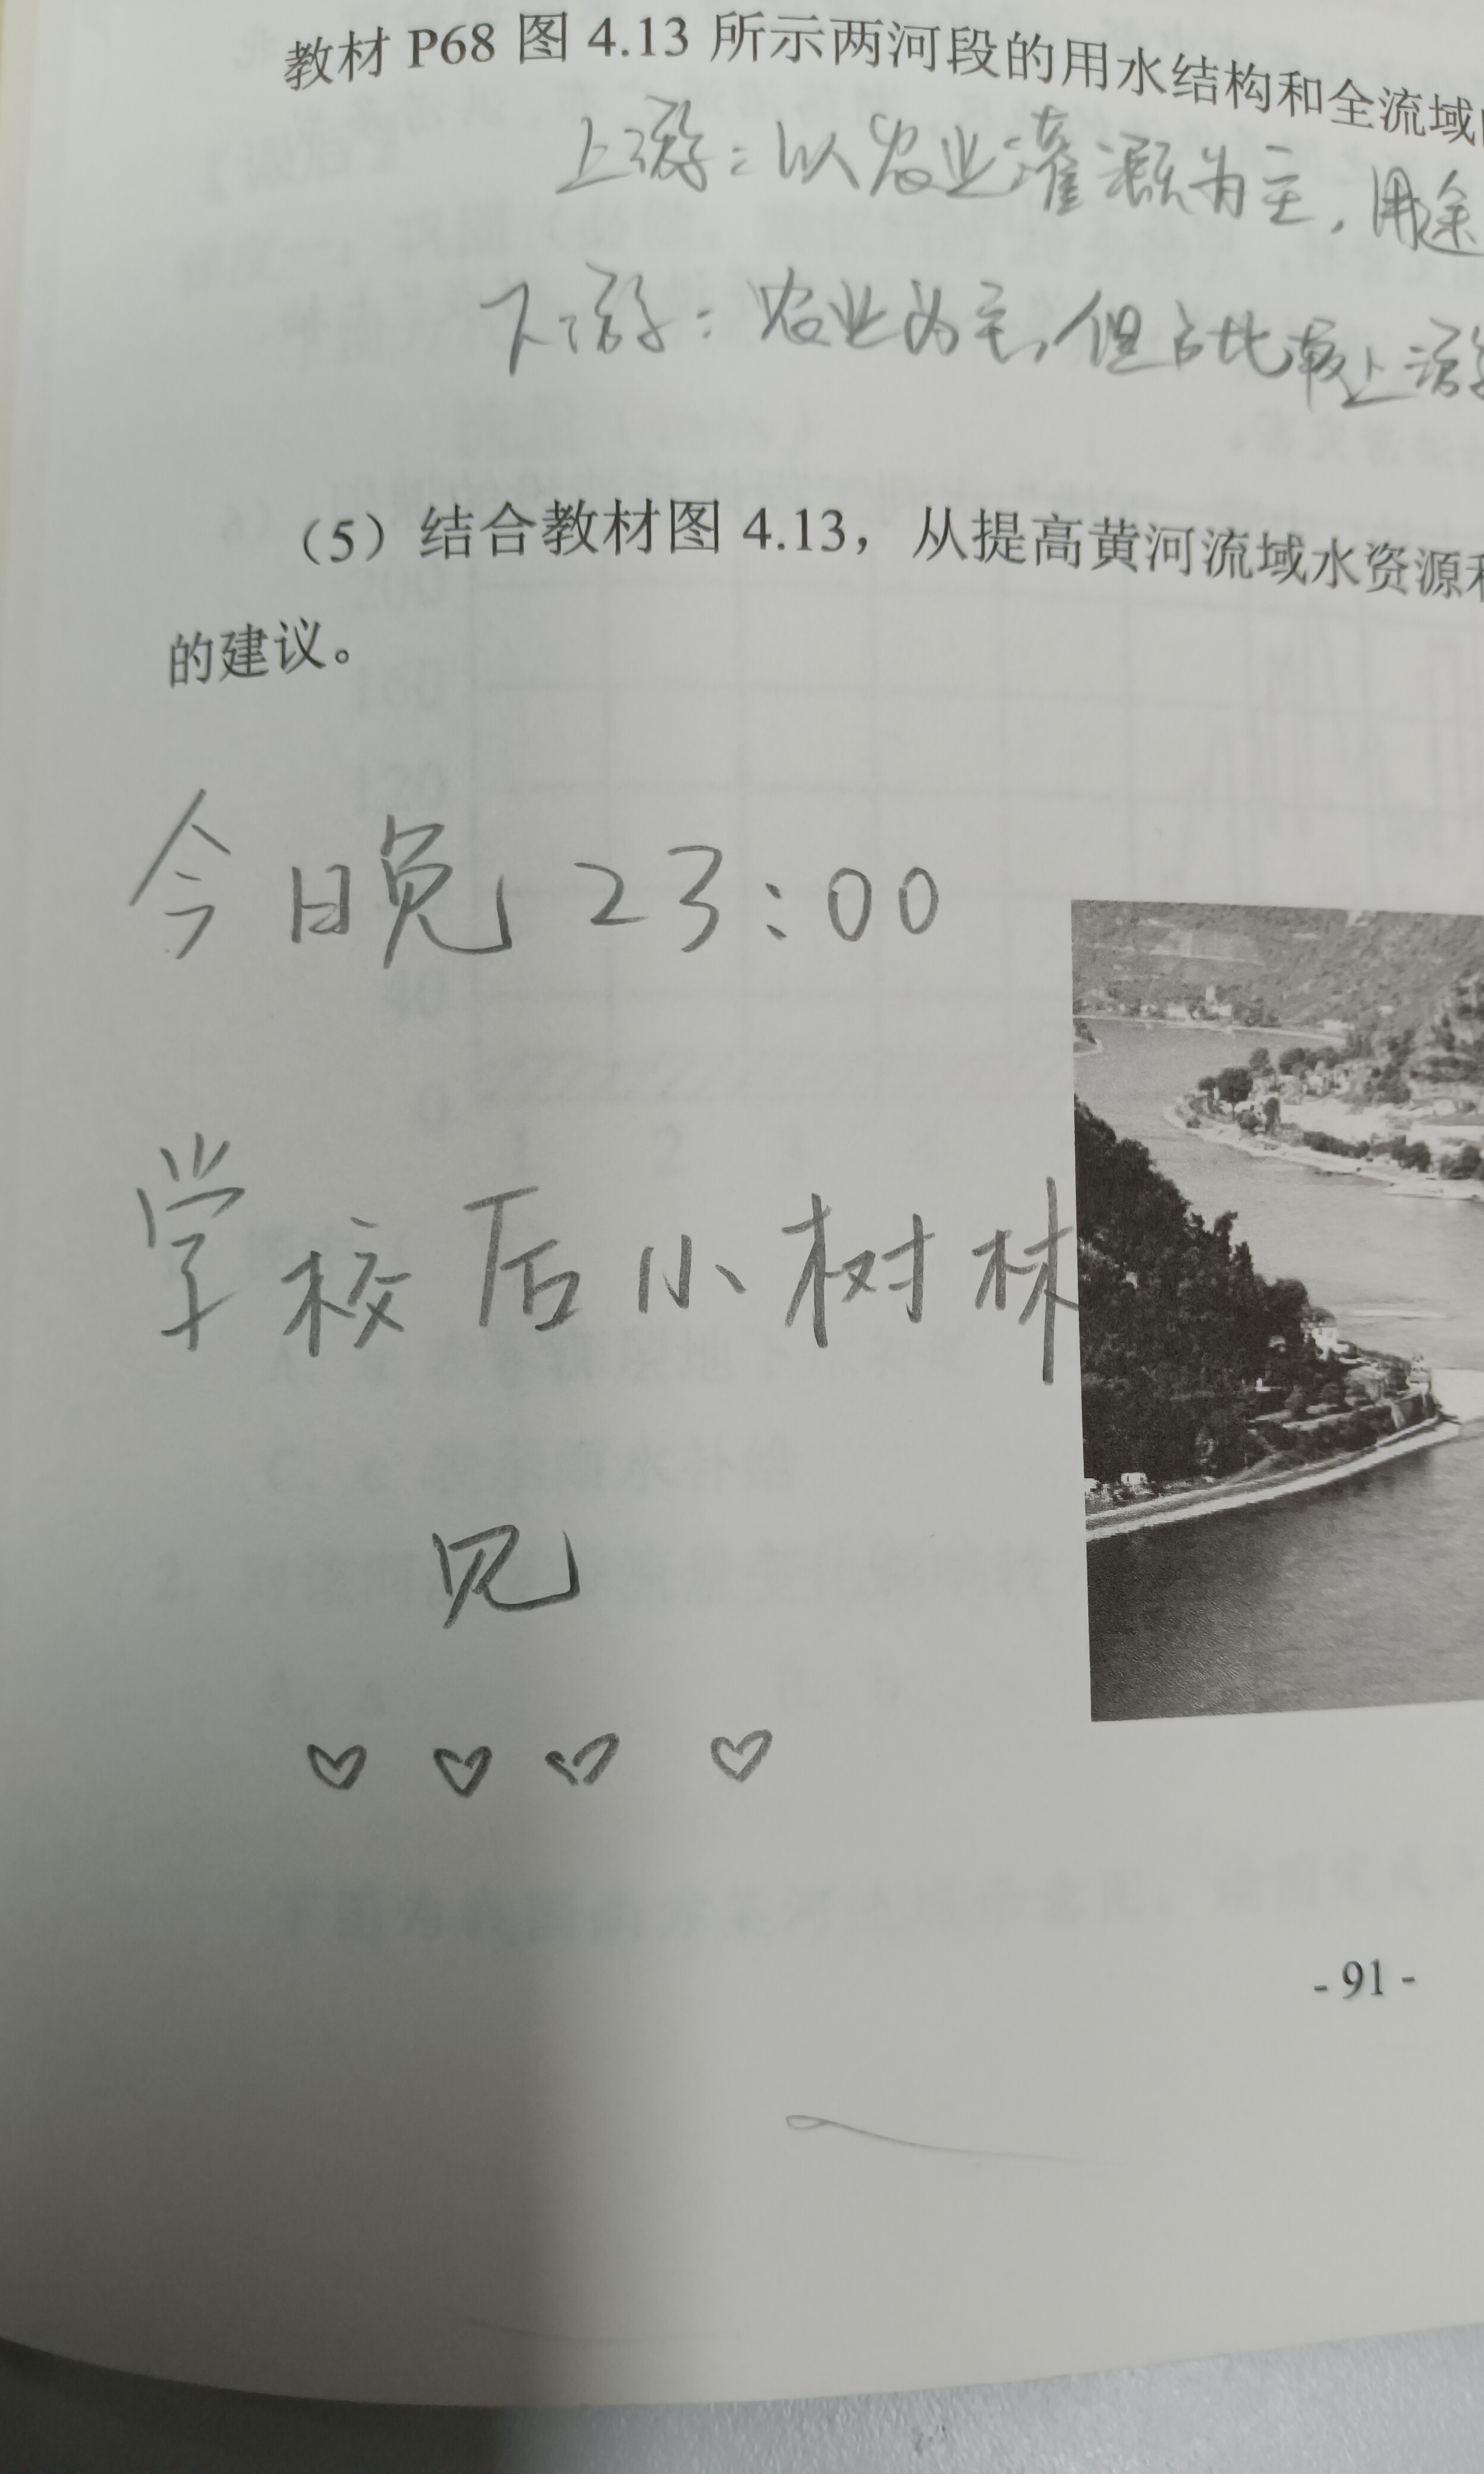 教材 P68 图 4.13 所示两河段的用水结构和全流域
上游：以农业灌溉为主，用途
下游：农业为主，但占比较上游
（5）结合教材图 4.13，从提高黄河流域水资源利
的建议。
今日晚 23:00
学校后小树林
见
♡ ♡ ♡ ♡
- 91 -